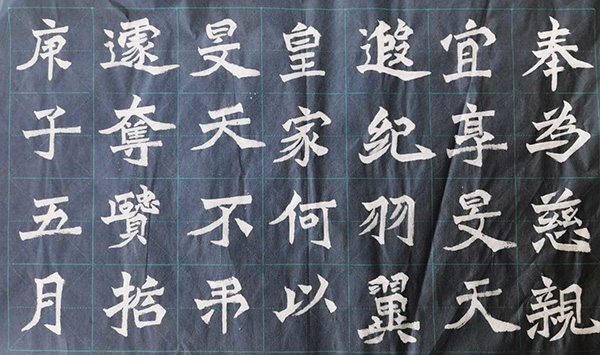 奉為慈親
宜享旻天
遐纪羽翼
皇家何以
旻天不弔
遽奪賢喆
庚子五月